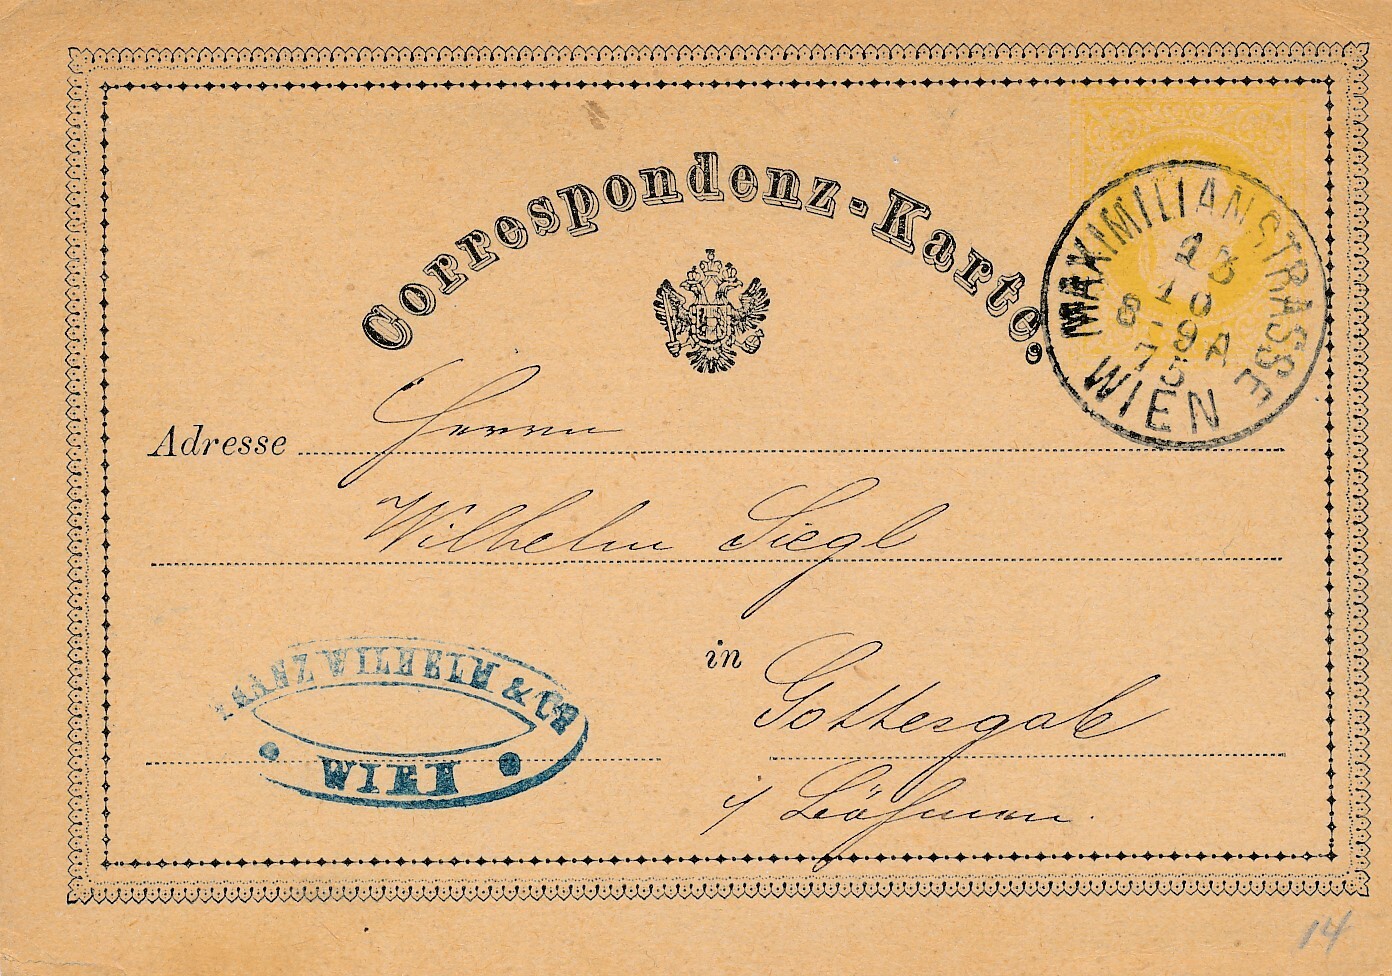 Correspondenz-Karte.
MAXIMILIANSTRASSE
13
10
8-9A
75
WIEN
Adresse Herrn
Wilhelm Siegl
in Gottesgab
FRANZ WILHELM & Co
WIEN
Böhmen.
14